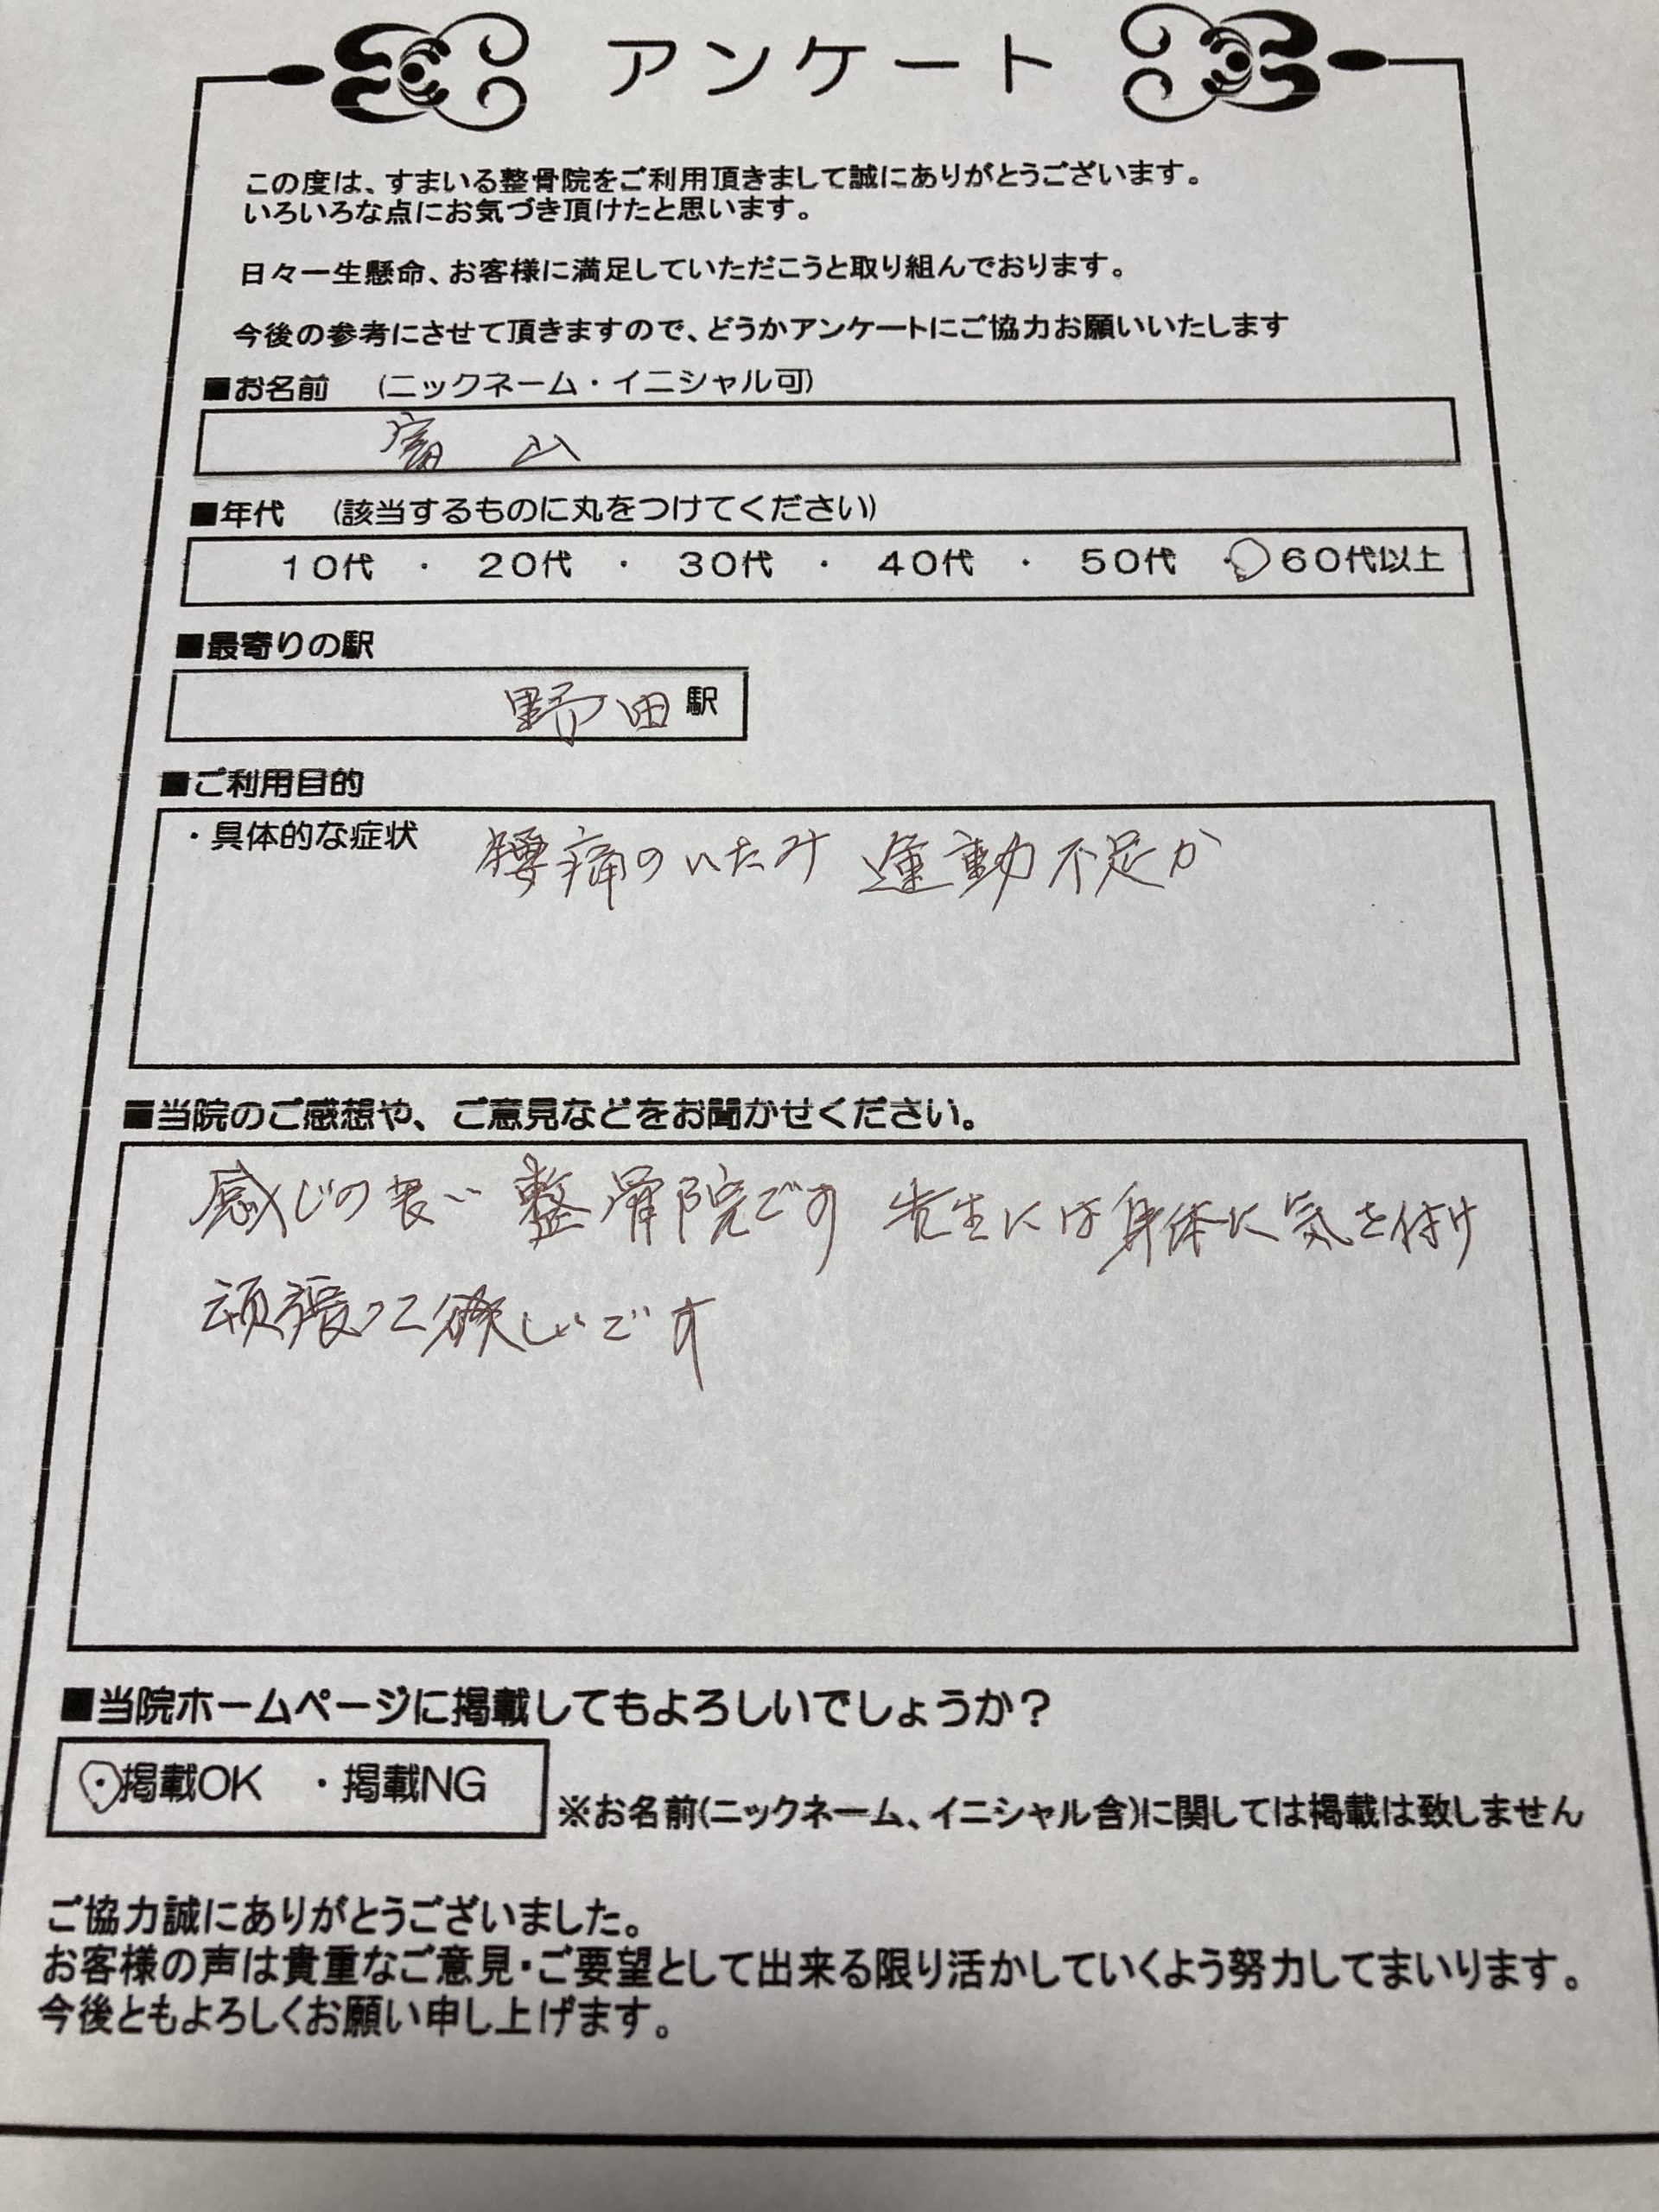 アンケート
この度は、すまいる整骨院をご利用頂きまして誠にありがとうございます。
いろいろな点にお気づき頂けたと思います。
日々一生懸命、お客様に満足していただこうと取り組んでおります。
今後の参考にさせて頂きますので、どうかアンケートにご協力お願いいたします
■お名前 (ニックネーム・イニシャル可)
富山
■年代 (該当するものに丸をつけてください)
10代 ・ 20代 ・ 30代 ・ 40代 ・ 50代 ・ 60代以上
■最寄りの駅
野田駅
■ご利用目的
・具体的な症状 腰痛のいたみ 運動不足か
■当院のご感想や、ご意見などをお聞かせください。
感じの良い整骨院です 先生には身体に気を付け
頑張って欲しいです
■当院ホームページに掲載してもよろしいでしょうか?
・掲載OK ・掲載NG
※お名前(ニックネーム、イニシャル含)に関しては掲載は致しません
ご協力誠にありがとうございました。
お客様の声は貴重なご意見・ご要望として出来る限り活かしていくよう努力してまいります。
今後ともよろしくお願い申し上げます。